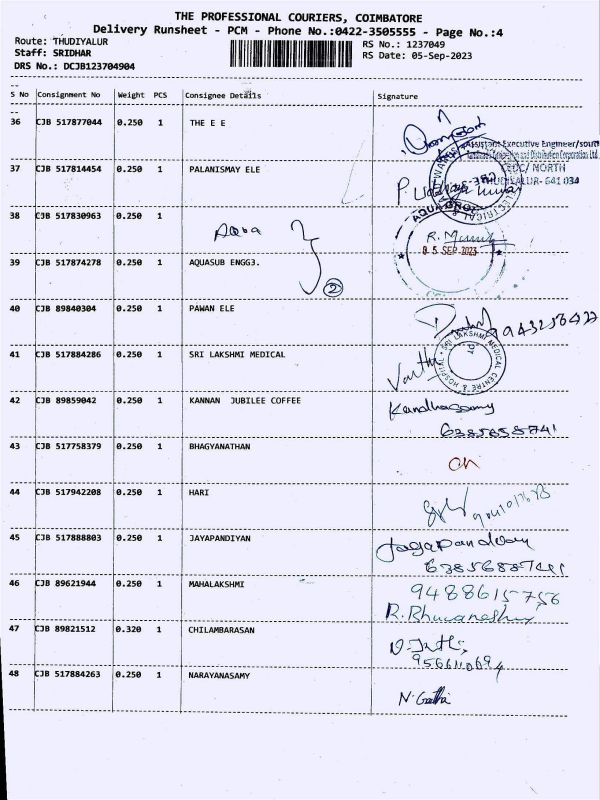 THE PROFESSIONAL COURIERS, COIMBATORE
Delivery Runsheet - PCM - Phone No.:0422-3505555 - Page No.:4
Route: THUDIYALUR
RS No.: 1237049
Staff: SRIDHAR
RS Date: 05-Sep-2023
DRS No.: DCJB123704904
S No Consignment No Weight PCS Consignee Details Signature
36 CJB 517877044 0.250 1 THE E E
Assistant Executive Engineer/south
37 CJB 517814454 0.250 1 PALANISMAY ELE
NORTH
THUDIYALUR- 641 034
38 CJB 517830963 0.250 1
Aqua
AQUA
ELECTRICAL
R.
05 SEP 2023
39 CJB 517874278 0.250 1 AQUASUB ENGG3.
2
40 CJB 89840304 0.250 1 PAWAN ELE
41 CJB 517884286 0.250 1 SRI LAKSHMI MEDICAL
SRI LAKSHMI MEDICAL CENTRE & HOSPITAL
42 CJB 89859042 0.250 1 KANNAN JUBILEE COFFEE
Kandhasamy
43 CJB 517758379 0.250 1 BHAGYANATHAN
44 CJB 517942208 0.250 1 HARI
45 CJB 517888803 0.250 1 JAYAPANDIYAN
46 CJB 89621944 0.250 1 MAHALAKSHMI
9488615756
47 CJB 89821512 0.320 1 CHILAMBARASAN
48 CJB 517884263 0.250 1 NARAYANASAMY